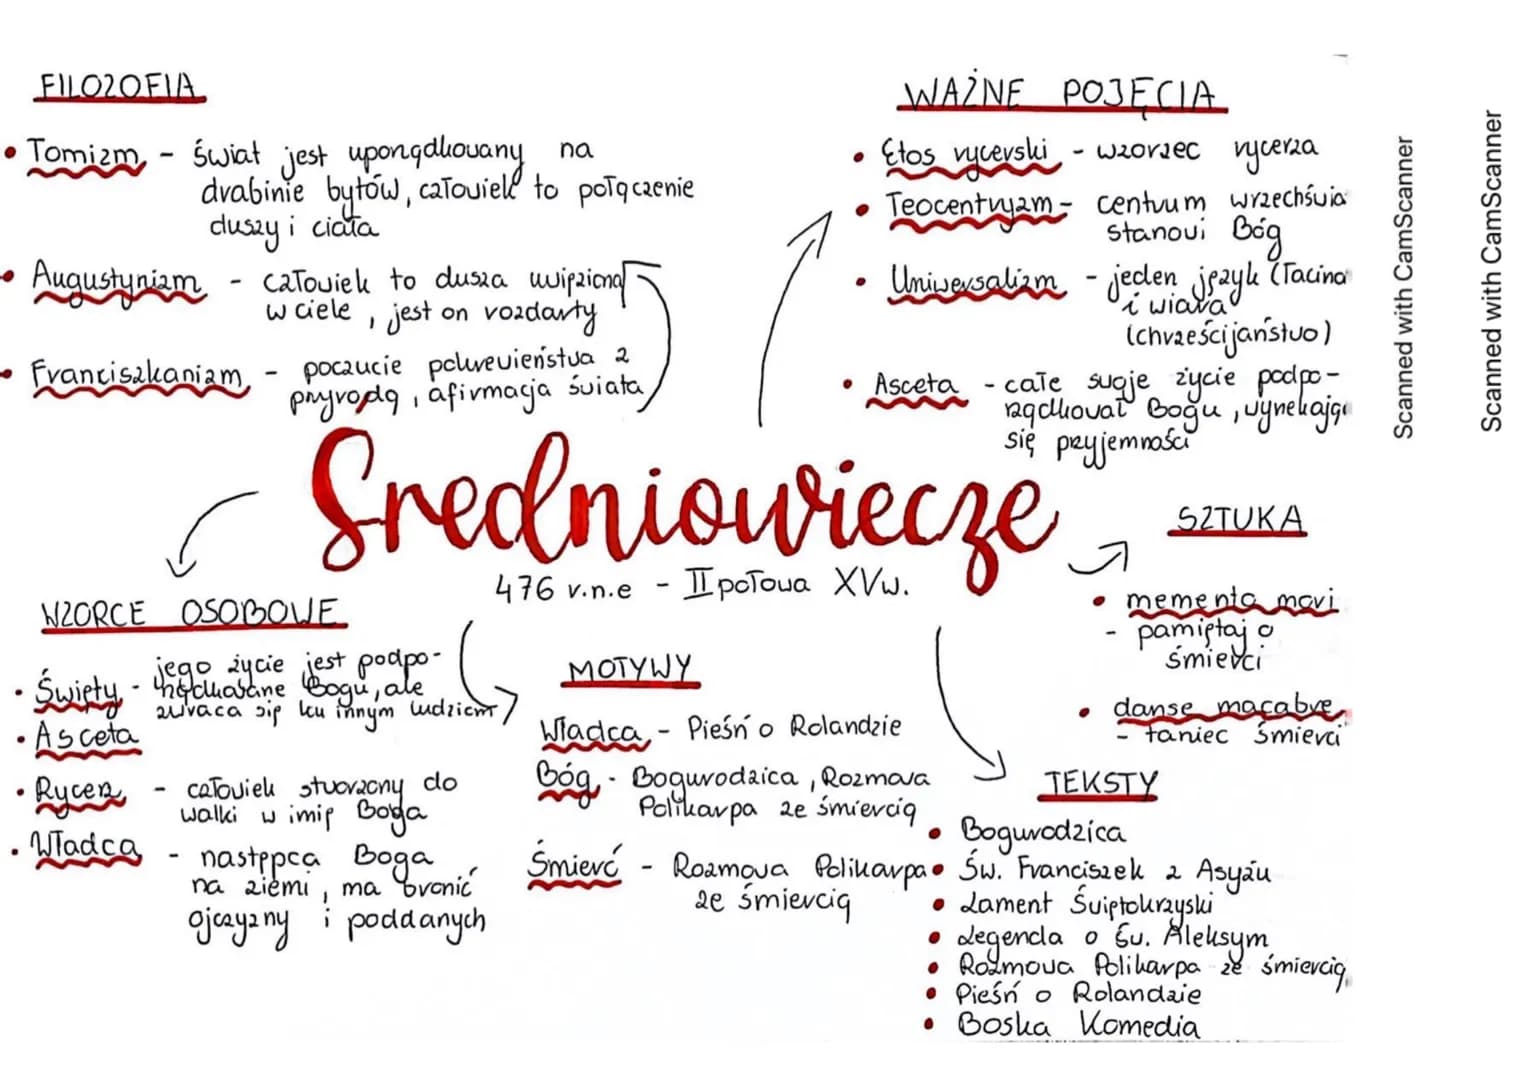 FILOZOFIA
• Tomizm - świat jest uporządkowany na
drabinie bytów, człowiek to połączenie
duszy i ciała
• Augustynizm - człowiek to dusza uwięziona
w ciele, jest on rozdarty
• Franciszkanizm - poczucie pokrewieństwa z
przyrodą, afirmacja świata
WAŻNE POJĘCIA
• Etos rycerski - wzorzec rycerza
• Teocentryzm - centrum wrzechświa
stanowi Bóg
• Uniwersalizm - jeden język (łacina
i wiara
(chrześcijaństwo)
• Asceta - całe swoje życie podpo-
rządkował Bogu, wyrekając
się przyjemności
Średniowiecze
476 r.n.e - II połowa XVw.
WZORCE OSOBOWE
• Święty - jego życie jest podpo-
rządkowane Bogu, ale
zwraca się ku innym ludziom
• Asceta
• Rycerz - człowiek stworzony do
walki w imię Boga
• Władca - następca Boga
na ziemi, ma bronić
ojczyzny i poddanych
MOTYWY
Władca - Pieśń o Rolandzie
Bóg - Bogurodzica, Rozmowa
Polikarpa ze śmiercią
Śmierć - Rozmowa Polikarpa
ze śmiercią
SZTUKA
• memento mori
- pamiętaj o
śmierci
• danse macabre
- taniec śmierci
TEKSTY
• Bogurodzica
• Św. Franciszek z Asyżu
• Lament Świętokrzyski
• Legenda o św. Aleksym
• Rozmowa Polikarpa ze śmiercią
• Pieśń o Rolandzie
• Boska Komedia
Scanned with CamScanner
Scanned with CamScanner